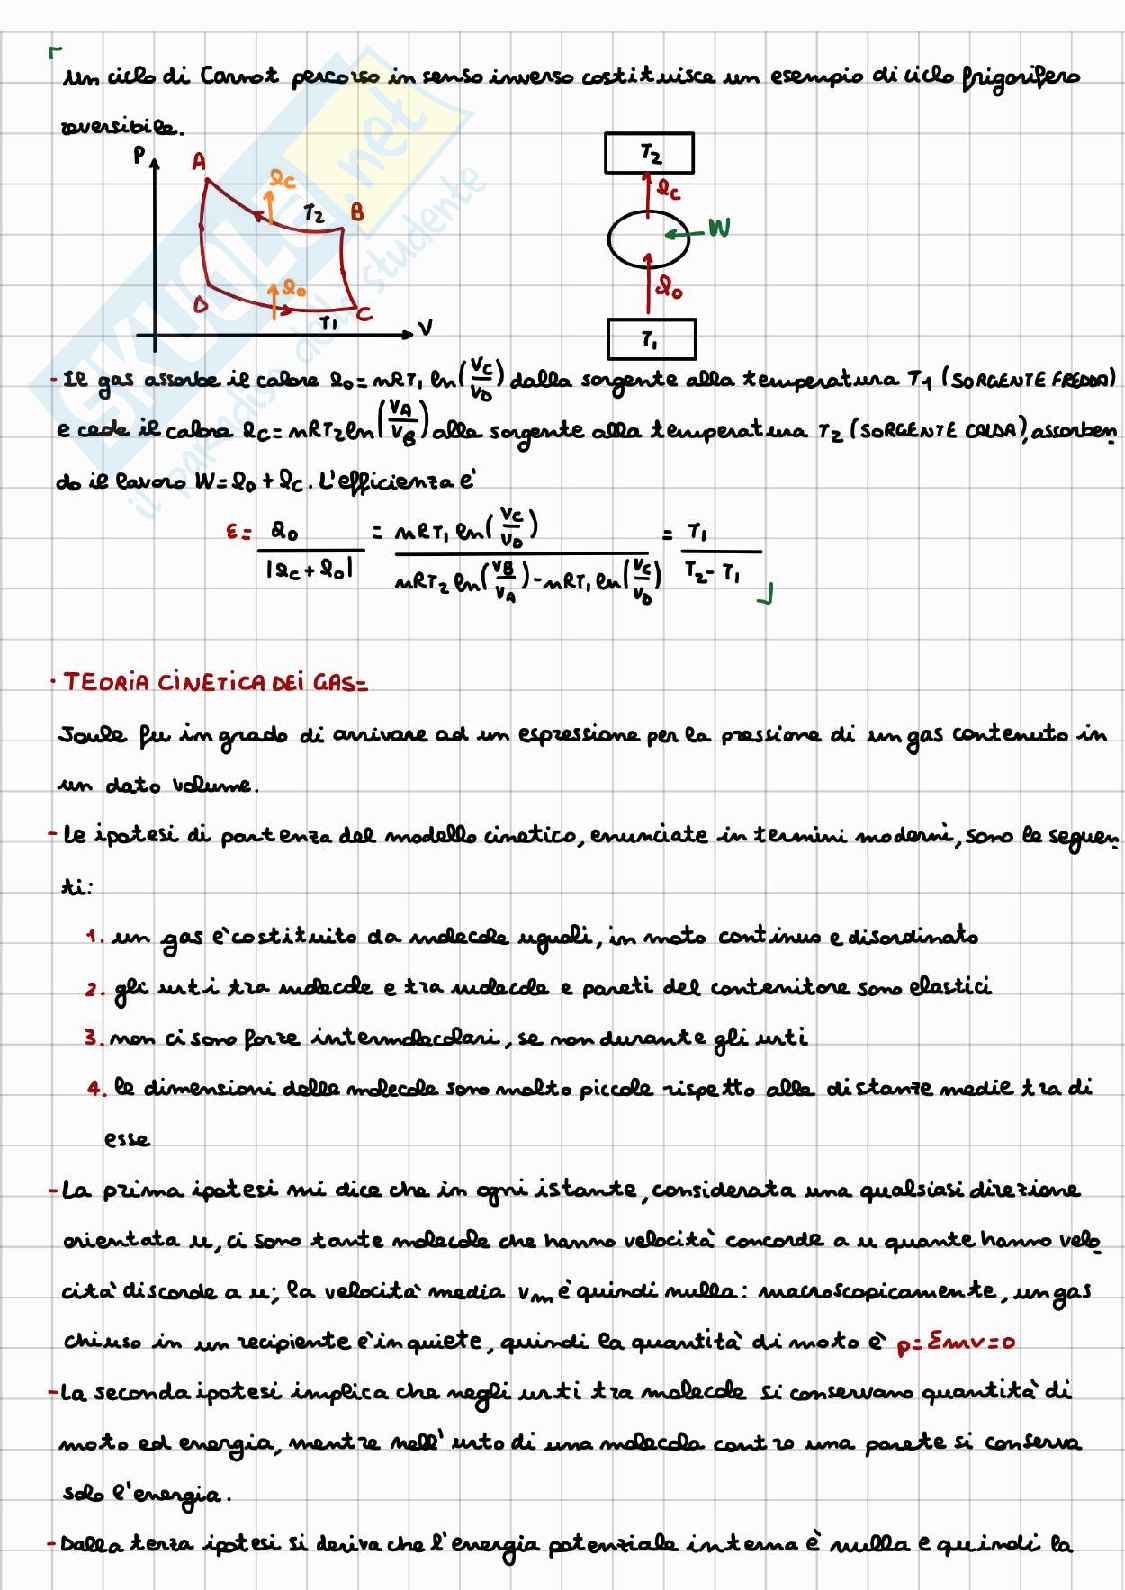 un ciclo di Carnot percorso in senso inverso costituisce un esempio di ciclo frigorifero
reversibile.
P
A
Qc
T2
B
D
Q0
T1
C
V
T2
Qc
W
Q0
T1
SKUOLA.net
il paradiso dello studente
- Il gas assorbe il calore Q0 = nRT1 ln(VC/VD) dalla sorgente alla temperatura T1 (SORGENTE FREDDA)
e cede il calore QC = nRT2 ln(VA/VB) alla sorgente alla temperatura T2 (SORGENTE CALDA), assorben
do il lavoro W = Q0 + QC. L'efficienza è
ε = Q0 / |QC + Q0| = nRT1 ln(VC/VD) / nRT2 ln(VB/VA) - nRT1 ln(VC/VD) = T1 / T2 - T1
· TEORIA CINETICA DEI GAS=
Joule fu in grado di arrivare ad un espressione per la pressione di un gas contenuto in
un dato volume.
- Le ipotesi di partenza del modello cinetico, enunciate in termini moderni, sono le seguen
ti:
1. un gas è costituito da molecole uguali, in moto continuo e disordinato
2. gli urti tra molecole e tra molecole e pareti del contenitore sono elastici
3. non ci sono forze intermolecolari, se non durante gli urti
4. le dimensioni delle molecole sono molto piccole rispetto alle distanze medie tra di
esse
- La prima ipotesi mi dice che in ogni istante, considerata una qualsiasi direzione
orientata u, ci sono tante molecole che hanno velocità concorde a u quante hanno velo
cità discorde a u; la velocità media vm è quindi nulla: macroscopicamente, un gas
chiuso in un recipiente è in quiete, quindi la quantità di moto è p=Σmv=0
- La seconda ipotesi implica che negli urti tra molecole si conservano quantità di
moto ed energia, mentre nell'urto di una molecola contro una parete si conserva
solo l'energia.
- Dalla terza ipotesi si deriva che l'energia potenziale interna è nulla e quindi la